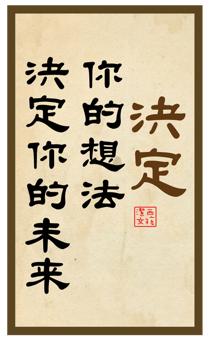 決定
你的想法
決定你的未来